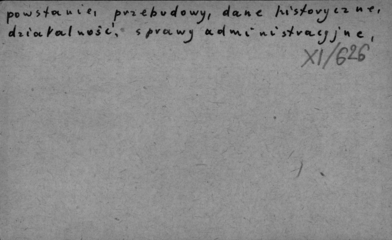 powstanie, przebudowy, dane historyczne,
działalność, sprawy administracyjne,
XI/626